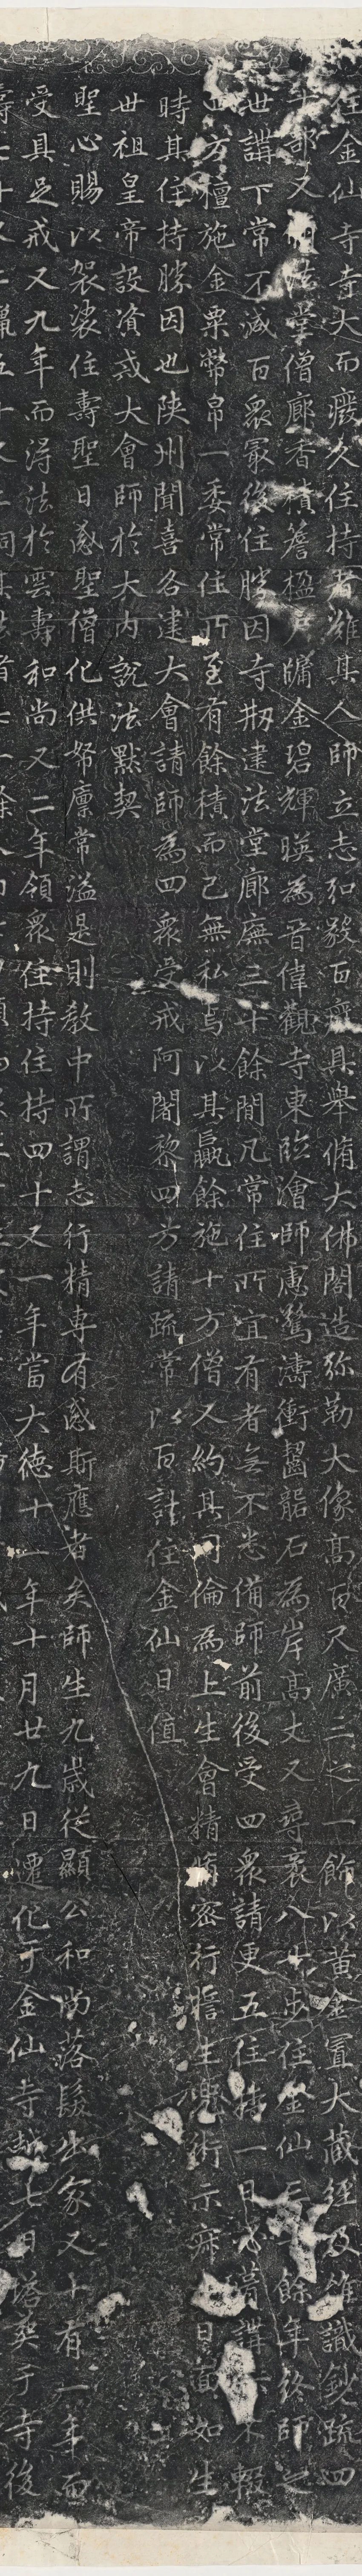 住金仙寺寺大而廢久住持者難其人師立志弘毅百廢具舉脩大佛閣造弥勒大像高百尺廣三之一飾以黃金置大藏經及唯識鈔疏四
十部又法堂僧廊香積簷楹戶牖金碧輝暎為晉偉觀寺東臨澮師慮驚濤衝齧甃石為岸高丈又尋袤八十步住金仙餘年終師之
世講下常不減百眾最後住勝因寺刱建法堂廊廡三十餘間凡常住所宜有者無不悉備師前後受四眾請更五住持一日不講不輟
四方檀施金粟幣帛一委常住所至有餘積而己無私焉以其贏餘施十方僧又約其同倫為上生會精脩密行擔生兜術示寂日真如生
時其住持勝因也陝州聞喜各建大會請師為四眾受戒阿闍黎四方請疏常以百計住金仙日值
世祖皇帝設資戒大會師於大內說法默契
聖心賜以袈裟住壽聖日感聖僧化供帑廩常溢是則教中所謂志行精專有感斯應者矣師生九歲從顯公和尚落髮出家又十有一年而
受具足戒又九年而得法於雲壽和尚又二年領眾住持住持四十又一年當大德十一年十月廿九日遷化于金仙寺越七日塔葬于寺後